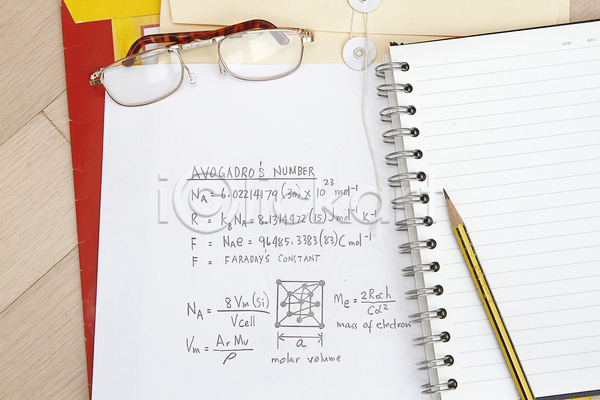 AVOGADRO'S NUMBER
N_A = 6.02214179 (30) x 10^23 mol^-1
R = k_B N_A = 8.1314472 (15) J mol^-1 K^-1
F = N_A e = 96485.3383 (83) C mol^-1
F = FARADAY'S CONSTANT
N_A = 8 V_m (Si) / V_cell
M_e = 2 R∞ch / Cα^2
mass of electron
a
V_m = A_r M_u / ρ
molar volume